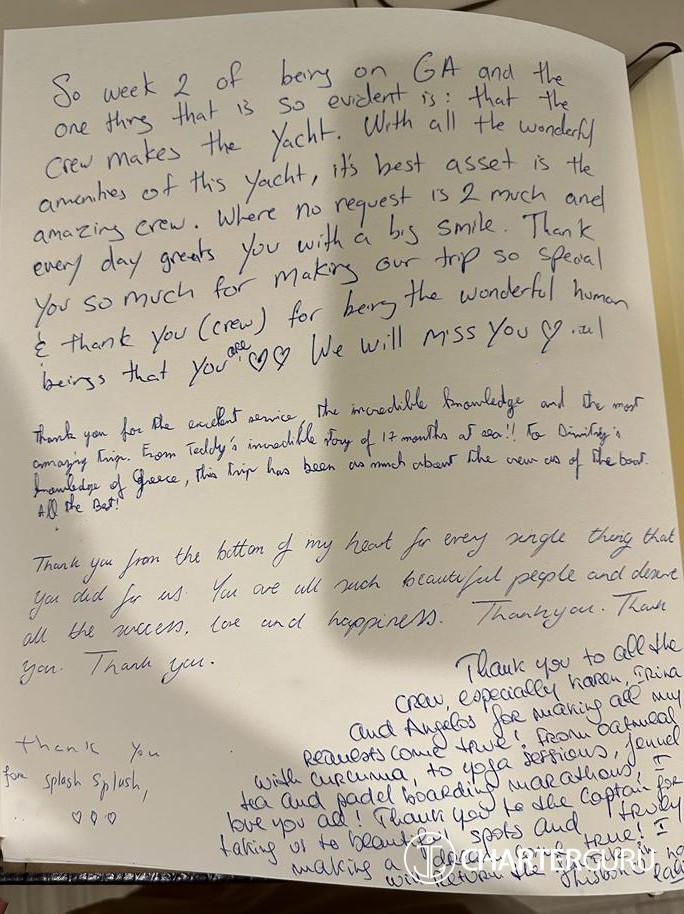 So week 2 of being on GA and the
one thing that is so evident is: that the
Crew makes the Yacht. With all the wonderful
amenities of this Yacht, it's best asset is the
amazing crew. Where no request is 2 much and
every day greets you with a big smile. Thank
you so much for making our trip so special
& thank you (crew) for being the wonderful human
beings that you are ♡♡ We will miss you ♡
Thank you for the excellent service, the incredible knowledge and the most
amazing trip. From Teddy's incredible story of 17 months at sea!! To Dimitry's
knowledge of Greece, this trip has been as much about the crew as of the boat.
All the Best!
Thank you from the bottom of my heart for every single thing that
you did for us. You are all such beautiful people and deserve
all the success, love and happiness. Thankyou. Thank
you. Thank you.
Thank you to all the
crew, especially Karen, Irina
and Angelos for making all my
requests come true! From oatmeal
with curcuma, to yoga sessions, fennel
tea and padel boarding marathons! I
love you all! Thank you to the Captain for
taking us to beautiful spots and truly
making a dream come true! I
will return the
thank you
for splash splush,
♡♡♡
CHARTERGURU